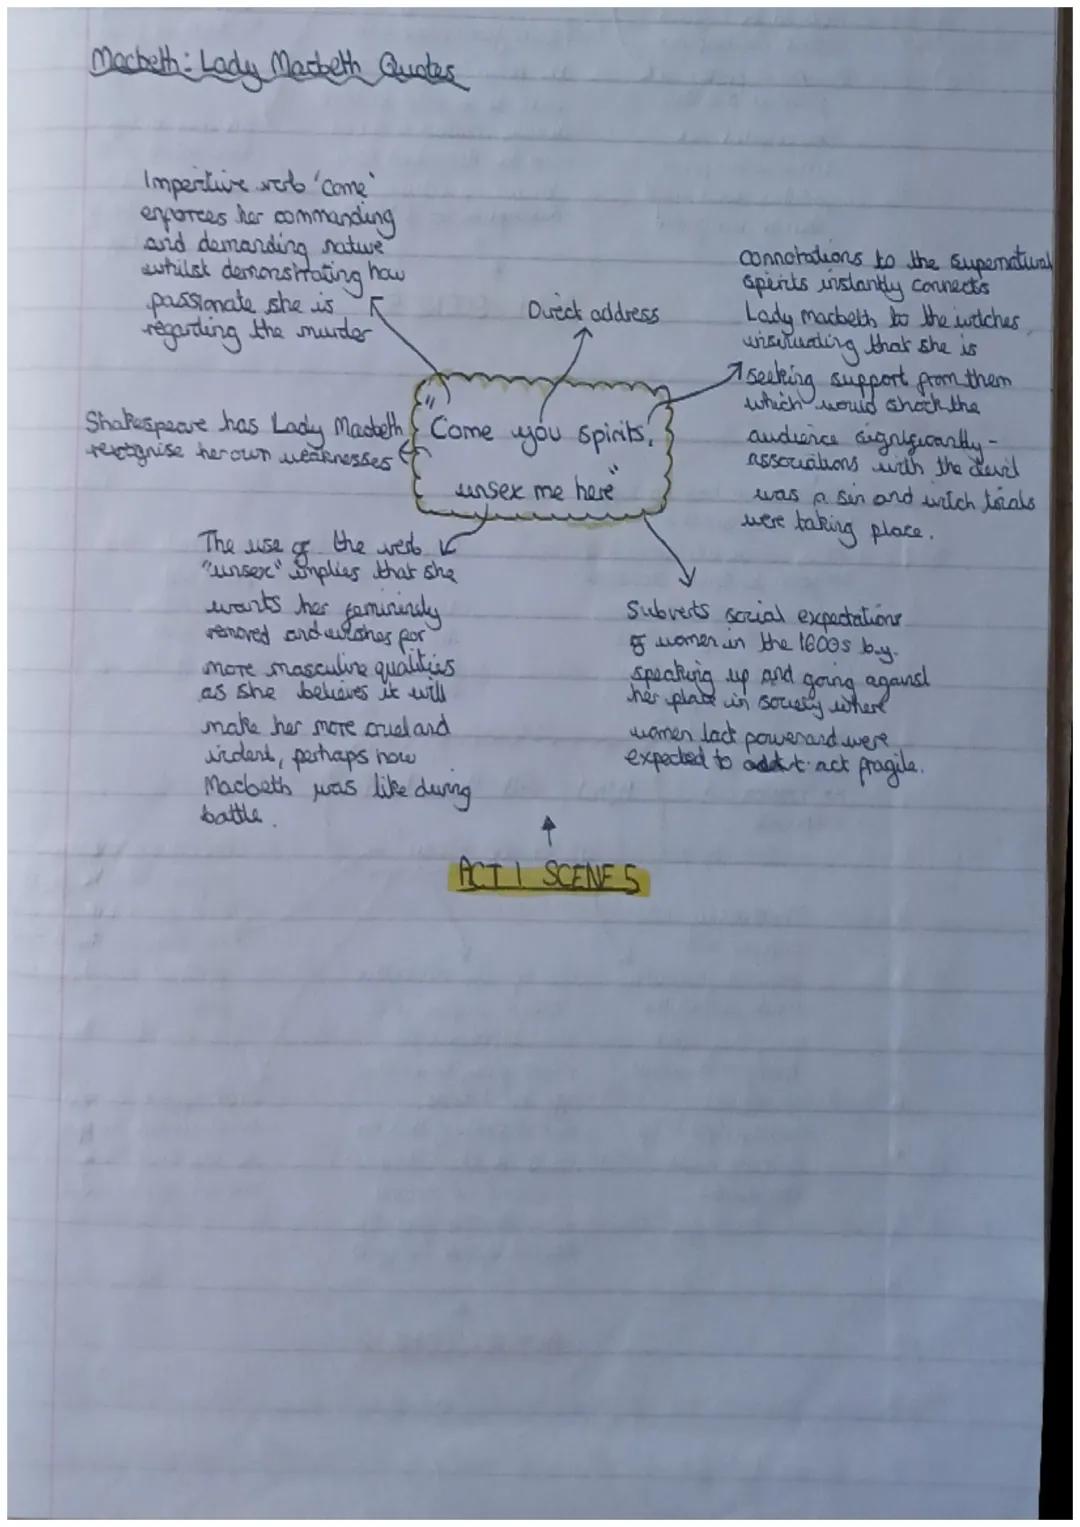 Macbeth: Lady Macbeth Quotes
Impertive verb 'come'
enforces her commanding
and demanding nature
whilst demonstrating how
passionate she is
regarding the murder
Direct address
connotations to the supernatural
spirits instantly connects
Lady macbeth to the witches,
insinuating that she is
seeking support from them
which would shock the
audience significantly -
associations with the devil
was a sin and witch trials
were taking place.
Shakespeare has Lady Macbeth
recognise her own weaknesses
"Come you spirits,
unsex me here"
The use of the verb
"unsex" implies that she
wants her femininity
removed and wishes for
more masculine qualities
as she believes it will
make her more cruel and
violent, perhaps how
Macbeth was like during
battle.
Subverts social expectations
of women in the 1600s by
speaking up and going against
her place in society where
women lack power and were
expected to act fragile.
ACT 1 SCENE 5